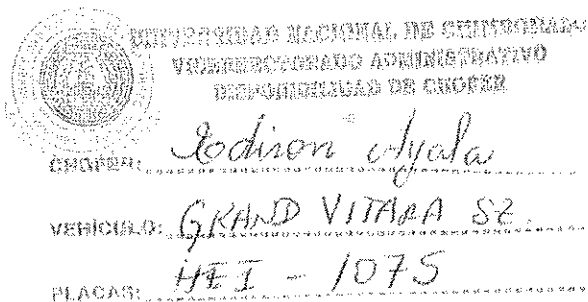 UNIVERSIDAD NACIONAL DE CHIMBORAZO
VICERRECTORADO ADMINISTRATIVO
DISPONIBILIDAD DE CHOFER
CHOFER: Edison Ayala
VEHÍCULO: GRAND VITARA SZ.
PLACAS: HEI - 1075